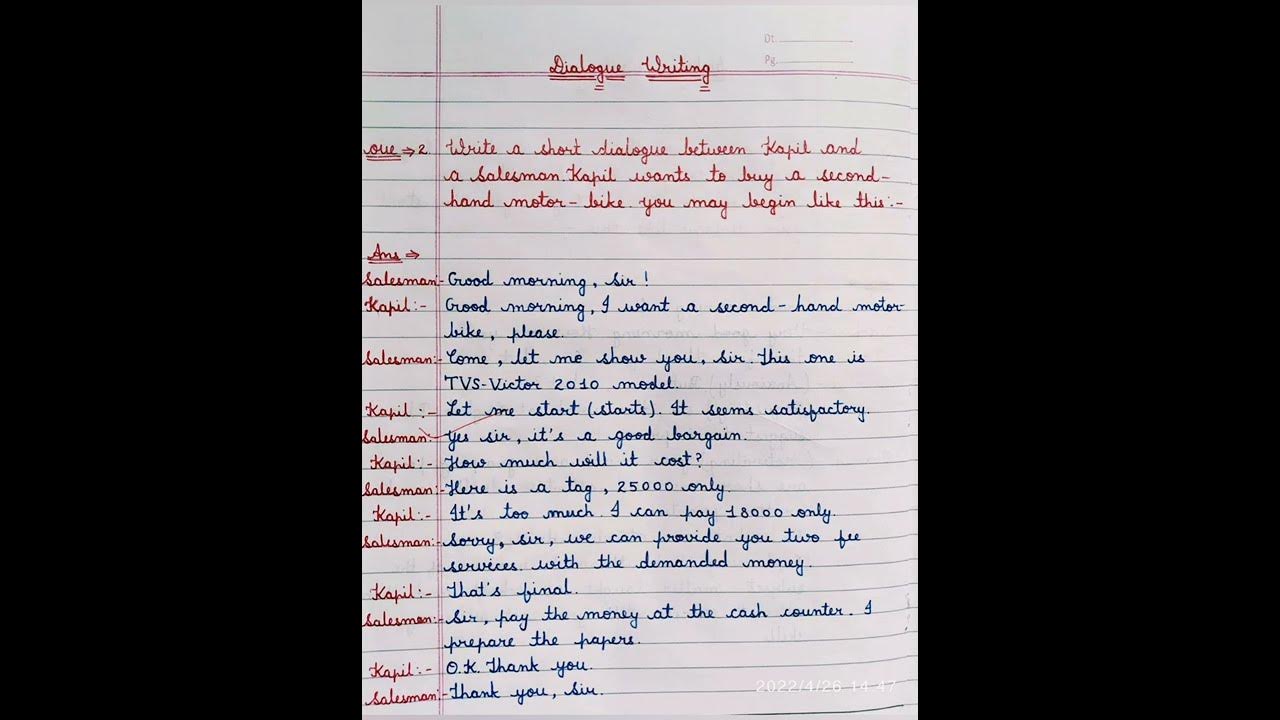 Dt.
Pg.
Dialogue Writing
Que ⇒ 2. Write a short dialogue between Kapil and
a Salesman. Kapil wants to buy a second-
hand motor-bike. you may begin like this :-
Ans ⇒
Salesman:- Good morning, Sir!
Kapil:- Good morning, I want a second-hand motor-
bike, please.
Salesman:- Come, let me show you, Sir. This one is
TVS-Victor 2010 model.
Kapil:- Let me start (starts). It seems satisfactory.
Salesman:- Yes sir, it's a good bargain.
Kapil:- How much will it cost?
Salesman:- Here is a tag, 25000 only.
Kapil:- It's too much I can pay 18000 only.
Salesman:- Sorry, sir, we can provide you two fee
services. with the demanded money.
Kapil:- That's final.
Salesman:- Sir, pay the money at the cash counter. I
prepare the papers.
Kapil:- O.K. Thank you.
Salesman:- Thank you, Sir.
2022/4/26 14:47